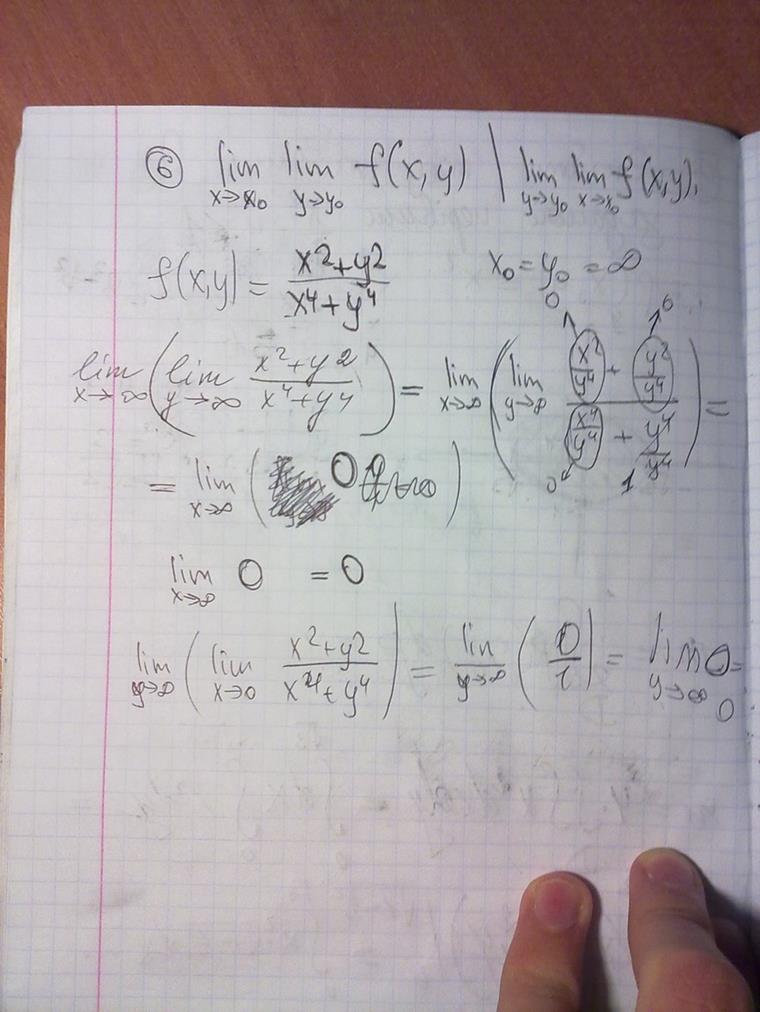 ⑥ lim x→x₀ lim y→y₀ f(x,y) | lim y→y₀ lim x→x₀ f(x,y),
f(x,y) = (x²+y²)/(x⁴+y⁴) x₀ = y₀ = ∞
lim x→∞ (lim y→∞ (x²+y²)/(x⁴+y⁴)) = lim x→∞ (lim y→∞ (x²/y⁴ →0 + y²/y⁴ →0)/(x⁴/y⁴ →0 + y⁴/y⁴ 1)) =
= lim x→∞ (0)
lim x→∞ 0 = 0
lim y→∞ (lim x→0 (x²+y²)/(x⁴+y⁴)) = lim y→∞ (0/1) = lim y→∞ 0 = 0